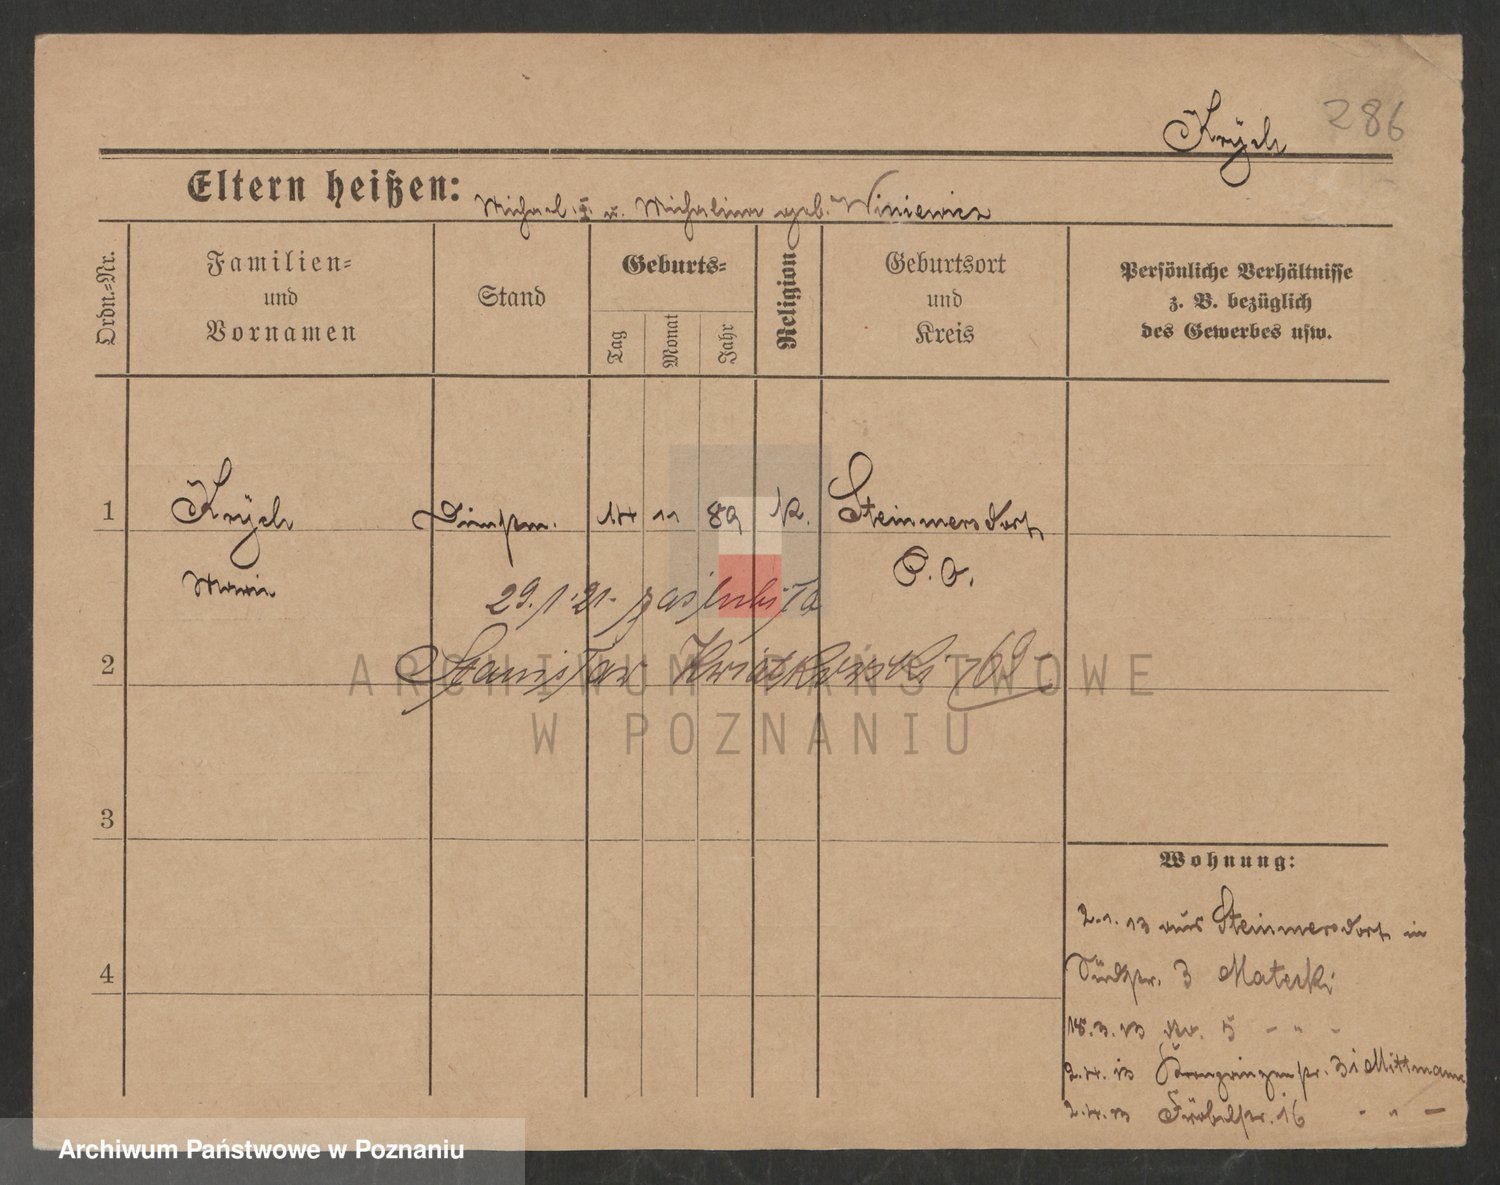 Krÿch 286
Eltern heißen: Michael u. Michalina geb. Winiewicz
Ordn.-Nr.
Familien=
und
Vornamen
Stand
Geburts=
Tag
Monat
Jahr
Religion
Geburtsort
und
Kreis
Persönliche Verhältnisse
z. B. bezüglich
des Gewerbes usw.
1 Krÿch 14 11 89 k. Steinmersdorf
Maria P. O.
29.1.21. zaślubiła
2 Stanisław Kwiatkowski
3
4
Wohnung:
2.1.13 aus Steinmersdorf in
Südstr. 3 Matecki
18.3.13 No. 5 - " -
2.4.13 Kronprinzenstr. 3 Mittmann
2.4.13 16 - " -
ARCHIWUM PAŃSTWOWE
W POZNANIU
Archiwum Państwowe w Poznaniu